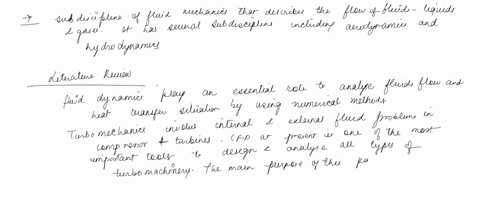 → subdiscipline of fluid mechanics that describes the flow of fluids - liquids
& gases. It has several subdiscipline including aerodynamics and
hydrodynamics
Literature Review
fluid dynamic plays an essential role to analyze fluids flow and
heat transfer situation by using numerical methods.
Turbo mechanics involve internal & external fluid problems in
compressor & turbines. CFD at present is one of the most
important tools to design & analyse all types of
turbomachinery. The main purpose of this pa